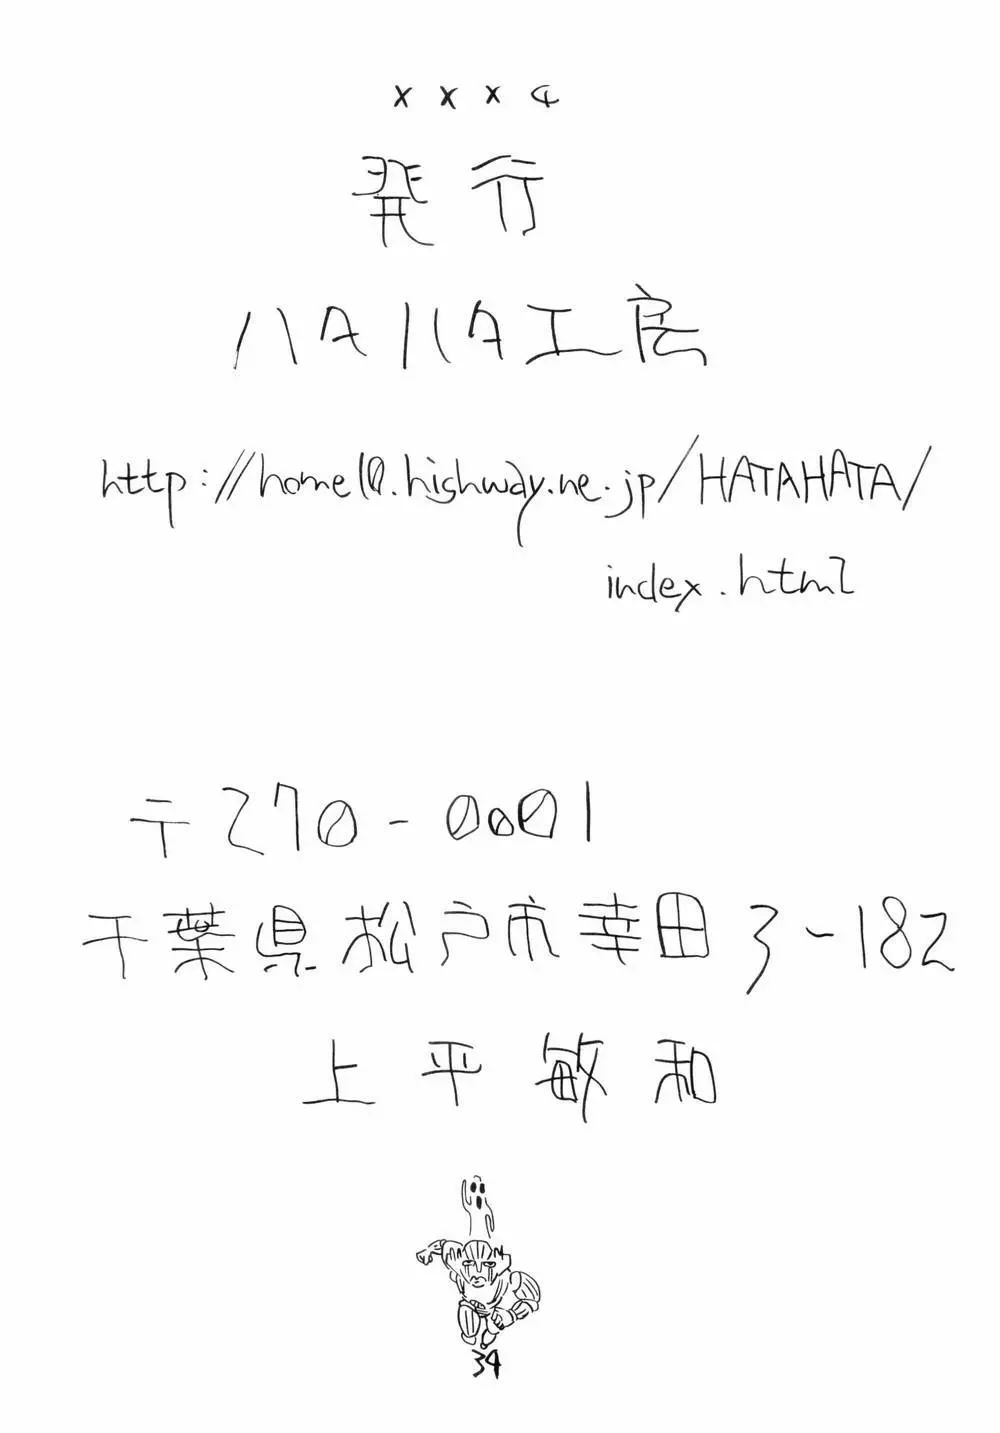 x x x 4
発行
ハタハタ工房
http://home10.highway.ne.jp/HATAHATA/
index.html
〒270-0001
千葉県松戸市幸田3-182
上平敏和
34